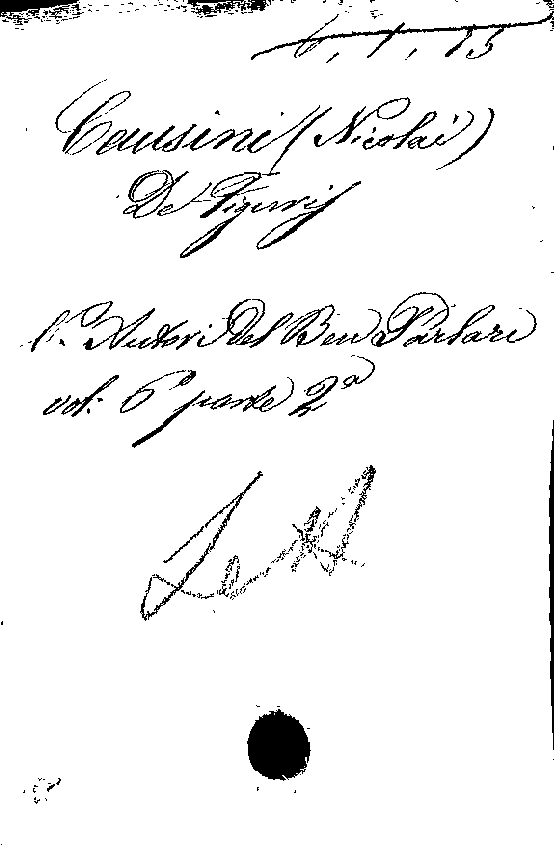 6, 1, 15
Causini (Nicolai)
De Figuris
V. Autori Del Ben Parlare
vol: 6º parte 2ª